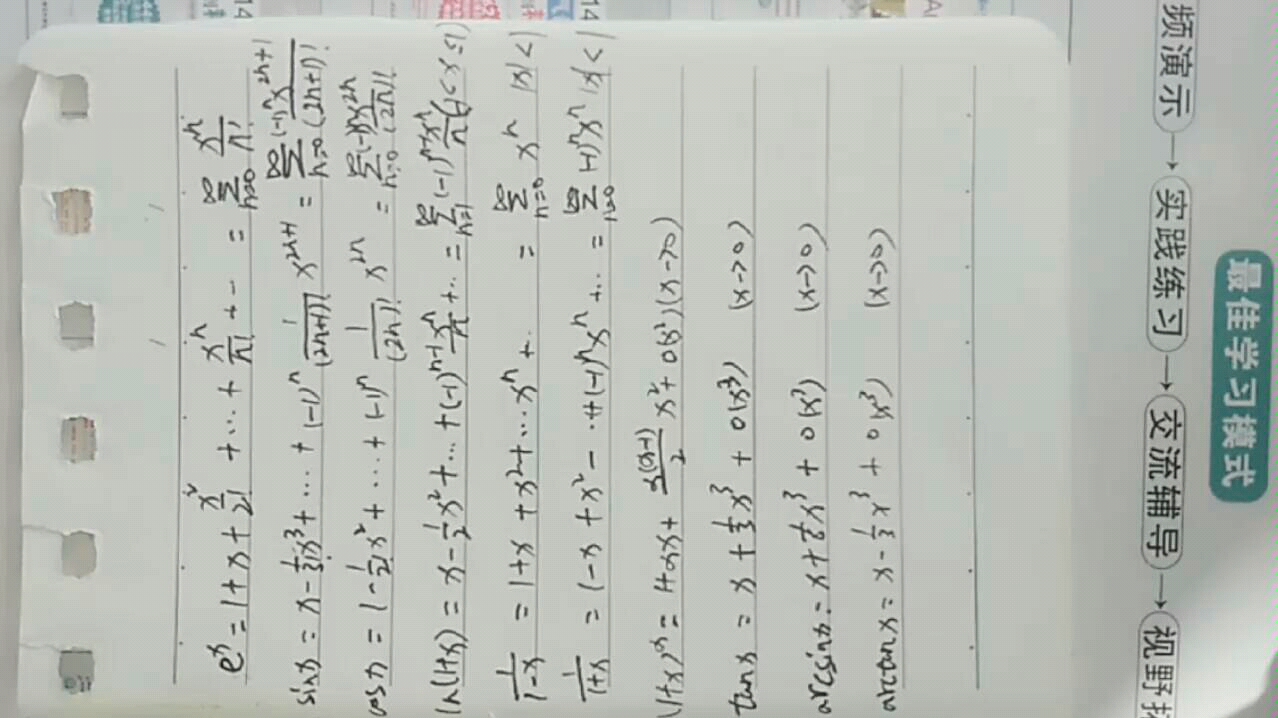 e^x = 1 + x + x²/2! + ... + x^n/n! + ... = ∑_{n=0}^{∞} x^n/n!
sinx = x - 1/3! x³ + ... + (-1)^n 1/(2n+1)! x^{2n+1} = ∑_{n=0}^{∞} (-1)^n x^{2n+1}/(2n+1)!
cosx = 1 - 1/2! x² + ... + (-1)^n 1/(2n)! x^{2n} = ∑_{n=0}^{∞} (-1)^n x^{2n}/(2n)!
ln(1+x) = x - 1/2 x² + ... + (-1)^{n-1} x^n/n + ... = ∑_{n=1}^{∞} (-1)^{n-1} x^n/n (-1 < x ≤ 1)
1/(1-x) = 1 + x + x² + ... x^n + ... = ∑_{n=0}^{∞} x^n |x| < 1
1/(1+x) = 1 - x + x² - ... + (-1)^n x^n + ... = ∑_{n=0}^{∞} (-1)^n x^n |x| < 1
(1+x)^α = 1 + αx + α(α-1)/2 x² + o(x²) (x→0)
tanx = x + 1/3 x³ + o(x³) (x→0)
arcsinx = x + 1/6 x³ + o(x³) (x→0)
arctanx = x - 1/3 x³ + o(x³) (x→0)
频演示 → 实践练习 → 交流辅导 → 视野
最佳学习模式